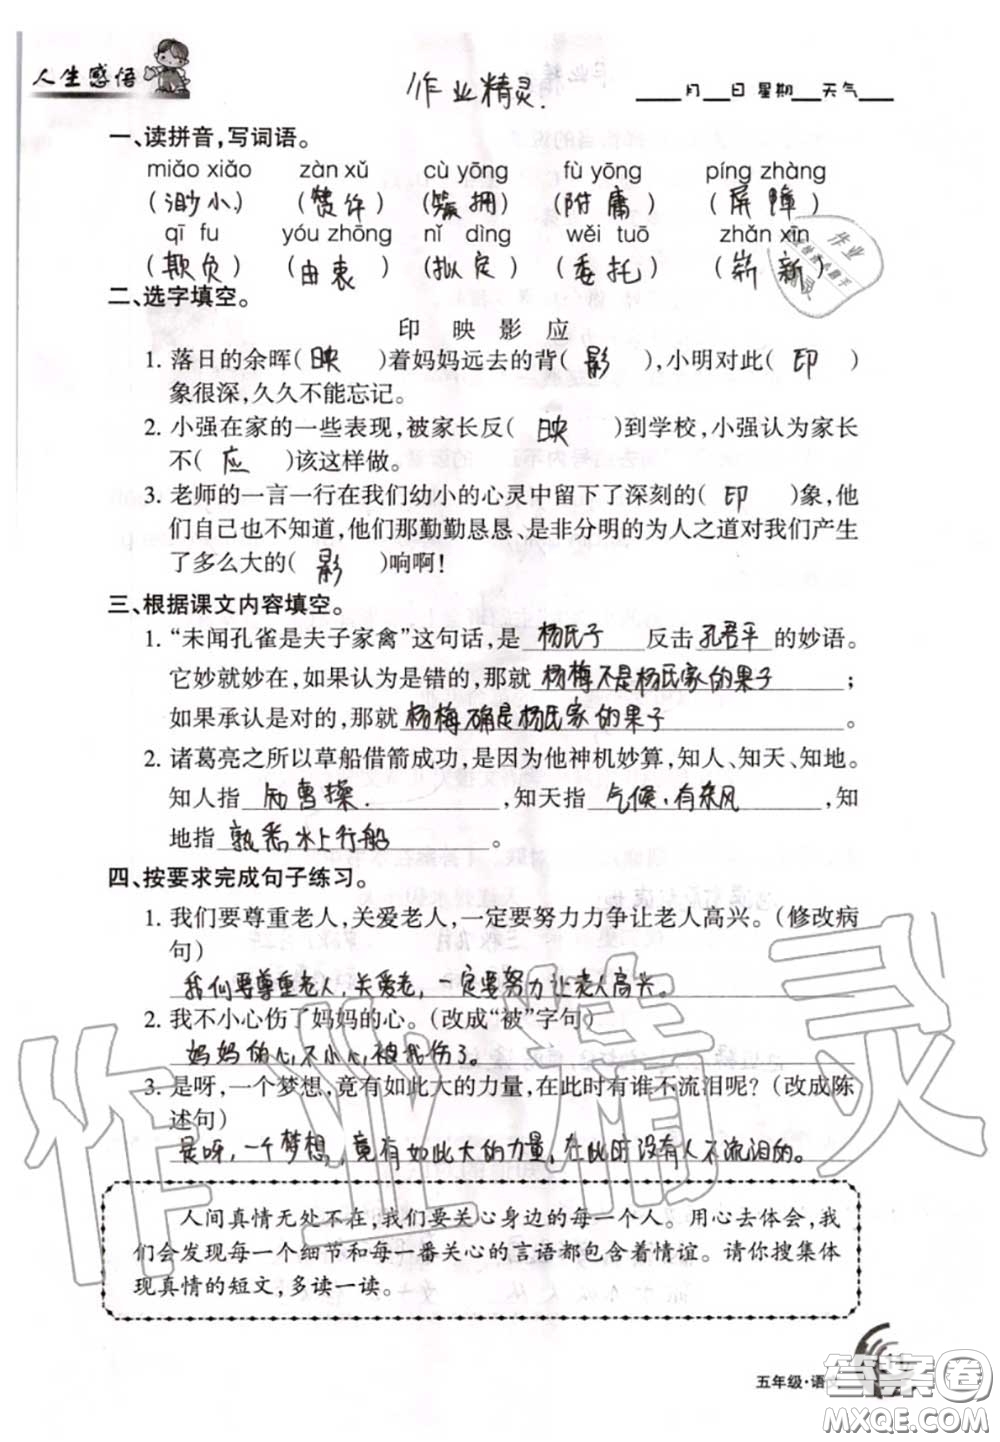 人生感悟
作业精灵.
___月___日 星期___天气___
一、读拼音,写词语。
miǎo xiǎo zàn xǔ cù yōng fù yōng píng zhàng
(渺小) (赞许) (簇拥) (附庸) (屏障)
qī fu yóu zhōng nǐ dìng wěi tuō zhǎn xīn
(欺负) (由衷) (拟定) (委托) (崭新)
二、选字填空。
印 映 影 应
1. 落日的余晖( 映 )着妈妈远去的背( 影 ),小明对此( 印 )
象很深,久久不能忘记。
2. 小强在家的一些表现,被家长反( 映 )到学校,小强认为家长
不( 应 )该这样做。
3. 老师的一言一行在我们幼小的心灵中留下了深刻的( 印 )象,他
们自己也不知道,他们那勤勤恳恳、是非分明的为人之道对我们产生
了多么大的( 影 )响啊!
三、根据课文内容填空。
1. “未闻孔雀是夫子家禽”这句话,是 杨氏子 反击 孔君平 的妙语。
它妙就妙在,如果认为是错的,那就 杨梅不是杨氏家的果子 ;
如果承认是对的,那就 杨梅确是杨氏家的果子 。
2. 诸葛亮之所以草船借箭成功,是因为他神机妙算,知人、知天、知地。
知人指 励曹操. ,知天指 气候,有东风 ,知
地指 熟悉水上行船 。
四、按要求完成句子练习。
1. 我们要尊重老人,关爱老人,一定要努力力争让老人高兴。(修改病
句)
我们要尊重老人,关爱老,一定要努力让老人高兴。
2. 我不小心伤了妈妈的心。(改成“被”字句)
妈妈的心不小心被我伤了。
3. 是呀,一个梦想,竟有如此大的力量,在此时有谁不流泪呢?(改成陈
述句)
是呀,一个梦想,竟有如此大的力量,在此时没有人不流泪的。
人间真情无处不在,我们要关心身边的每一个人。用心去体会,我
们会发现每一个细节和每一番关心的言语都包含着情谊。请你搜集体
现真情的短文,多读一读。
五年级·语文
作业精灵
答案圈
MXQE.COM